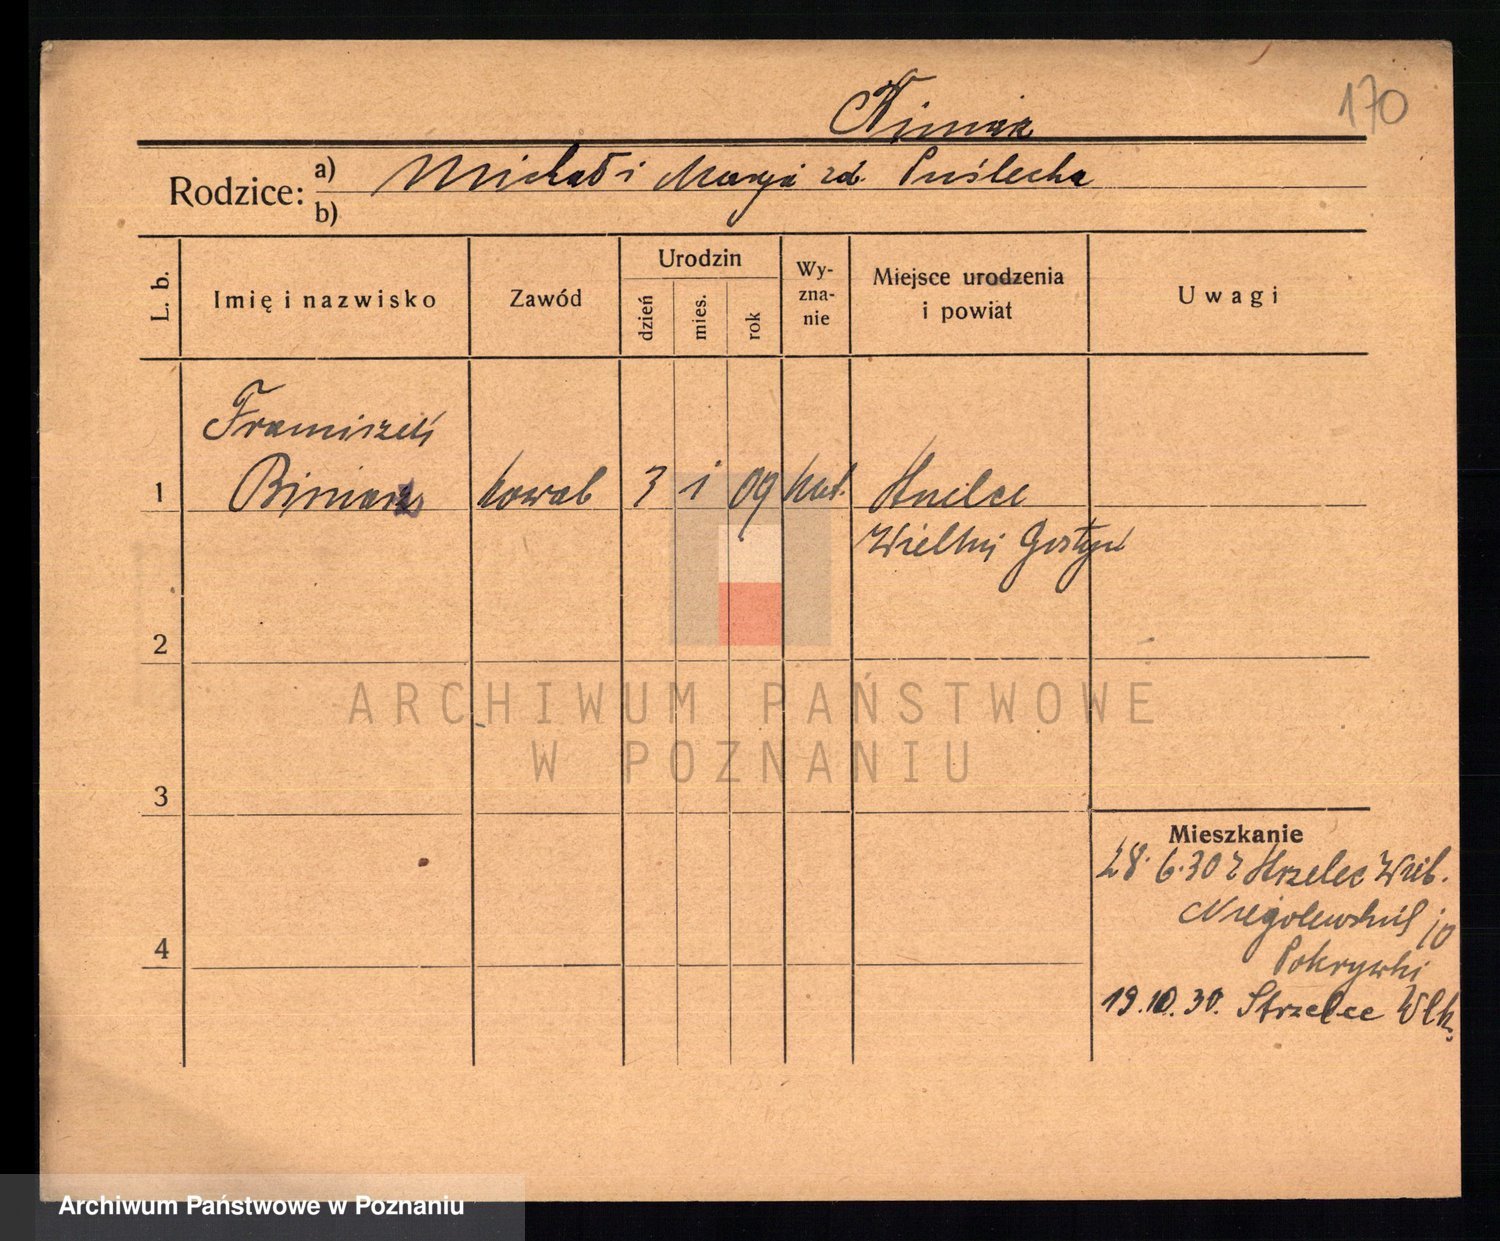 170
Biniaz
Rodzice: a) Michał i Marja zd. Puślecka
b)
L. b.
Imię i nazwisko
Zawód
Urodzin
dzień
mies.
rok
Wy-
zna-
nie
Miejsce urodzenia
i powiat
Uwagi
Franciszek
1 Biniaz kowal 3 1 09 kat.
Wielkie Gostyń
2
3
4
Mieszkanie
28.6.30 z Strzelec Wielk.
Niegolewskich 10
Pokrywki
19.10.30. Strzelce Wlk.
ARCHIWUM PAŃSTWOWE
W POZNANIU
Archiwum Państwowe w Poznaniu